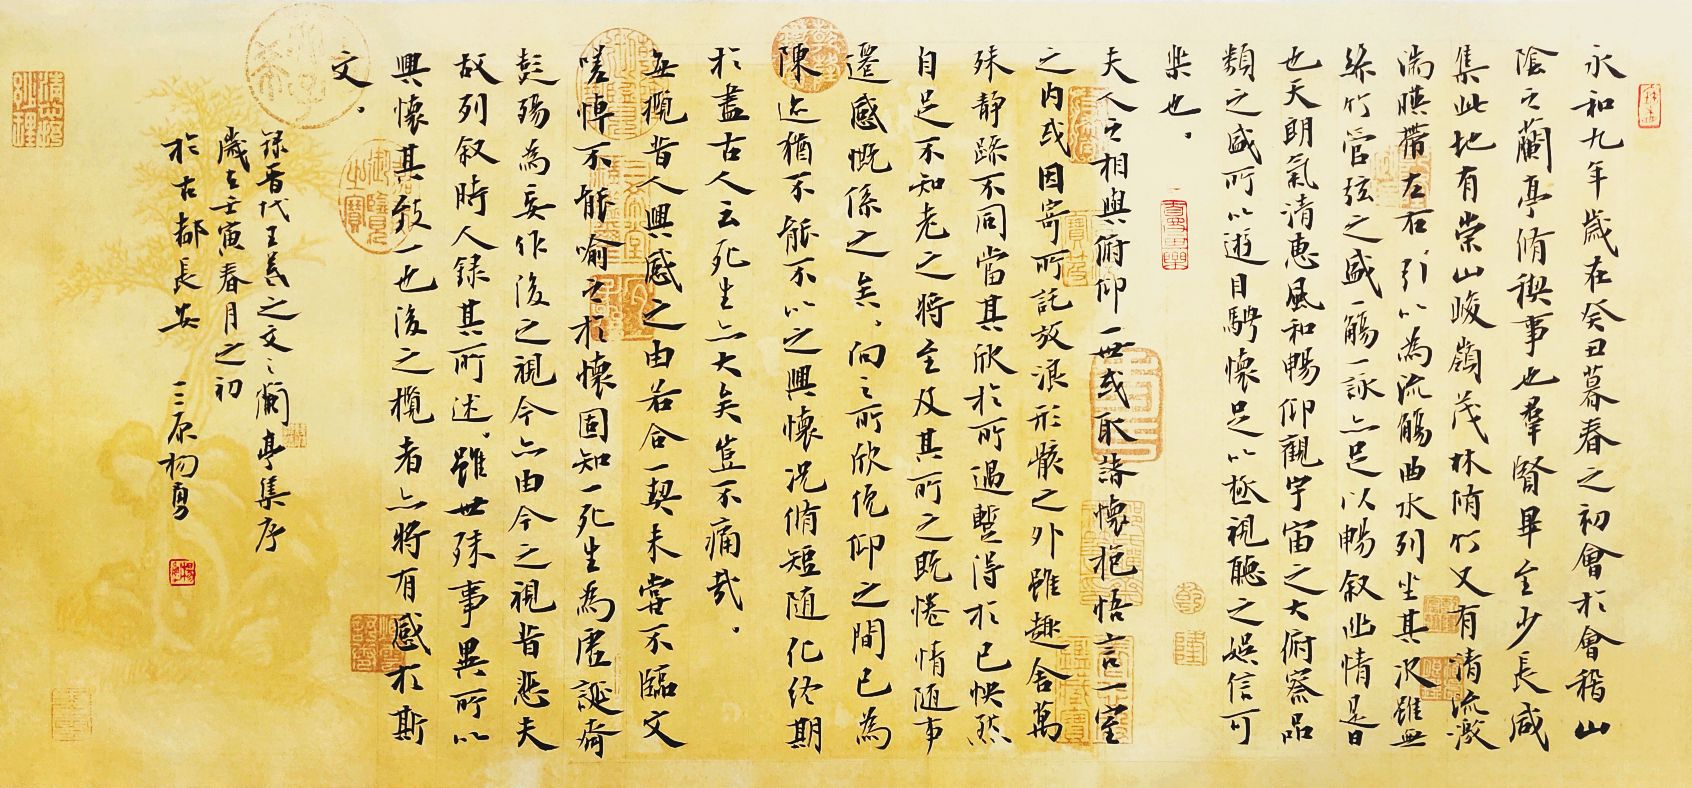 永和九年歲在癸丑暮春之初會於會稽山
陰之蘭亭脩稧事也羣賢畢至少長咸
集此地有崇山峻嶺茂林脩竹又有清流激
湍暎帶左右，引以為流觴曲水列坐其次雖無
絲竹管弦之盛一觴一詠亦足以暢叙幽情是日
也天朗氣清惠風和暢仰觀宇宙之大俯察品
類之盛所以遊目騁懷足以極視聽之娛信可
樂也。
夫人之相與俯仰一世或取諸懷抱悟言一室
之内或因寄所託放浪形骸之外雖趣舍萬
殊静躁不同當其欣於所遇暫得於己怏然
自足不知老之將至及其所之既惓情隨事
遷感慨係之矣，向之所欣俛仰之間已為
陳迹猶不能不以之興懷況脩短隨化終期
於盡古人云死生亦大矣豈不痛哉。
每攬昔人興感之由若合一契未嘗不臨文
嗟悼不能喻之於懷固知一死生為虛誕齊
彭殤為妄作後之視今亦由今之視昔悲夫
故列叙時人錄其所述，雖世殊事異所以
興懷其致一也後之攬者亦將有感於斯
文。
錄晋代王羲之文之蘭亭集序
歲在壬寅春月之初
於古都長安 三原楊勇